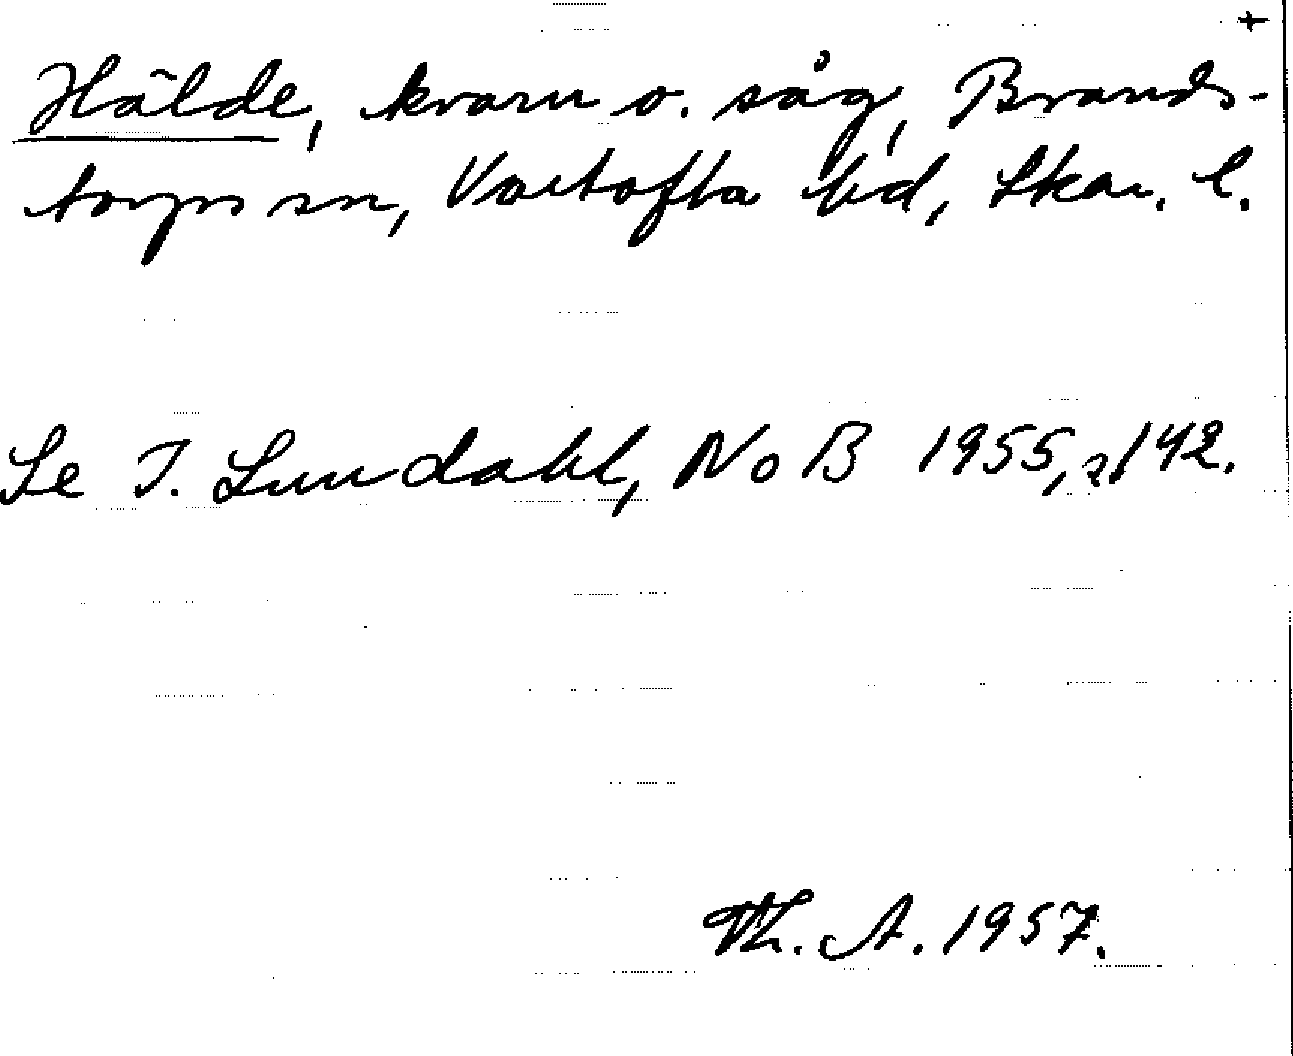 +
Hälde, kvarn o. såg, Brands-
torps sn, Vartofta hd, Skar. l.
Se I. Lundahl, NoB 1955, s/142.
Th. A. 1957.